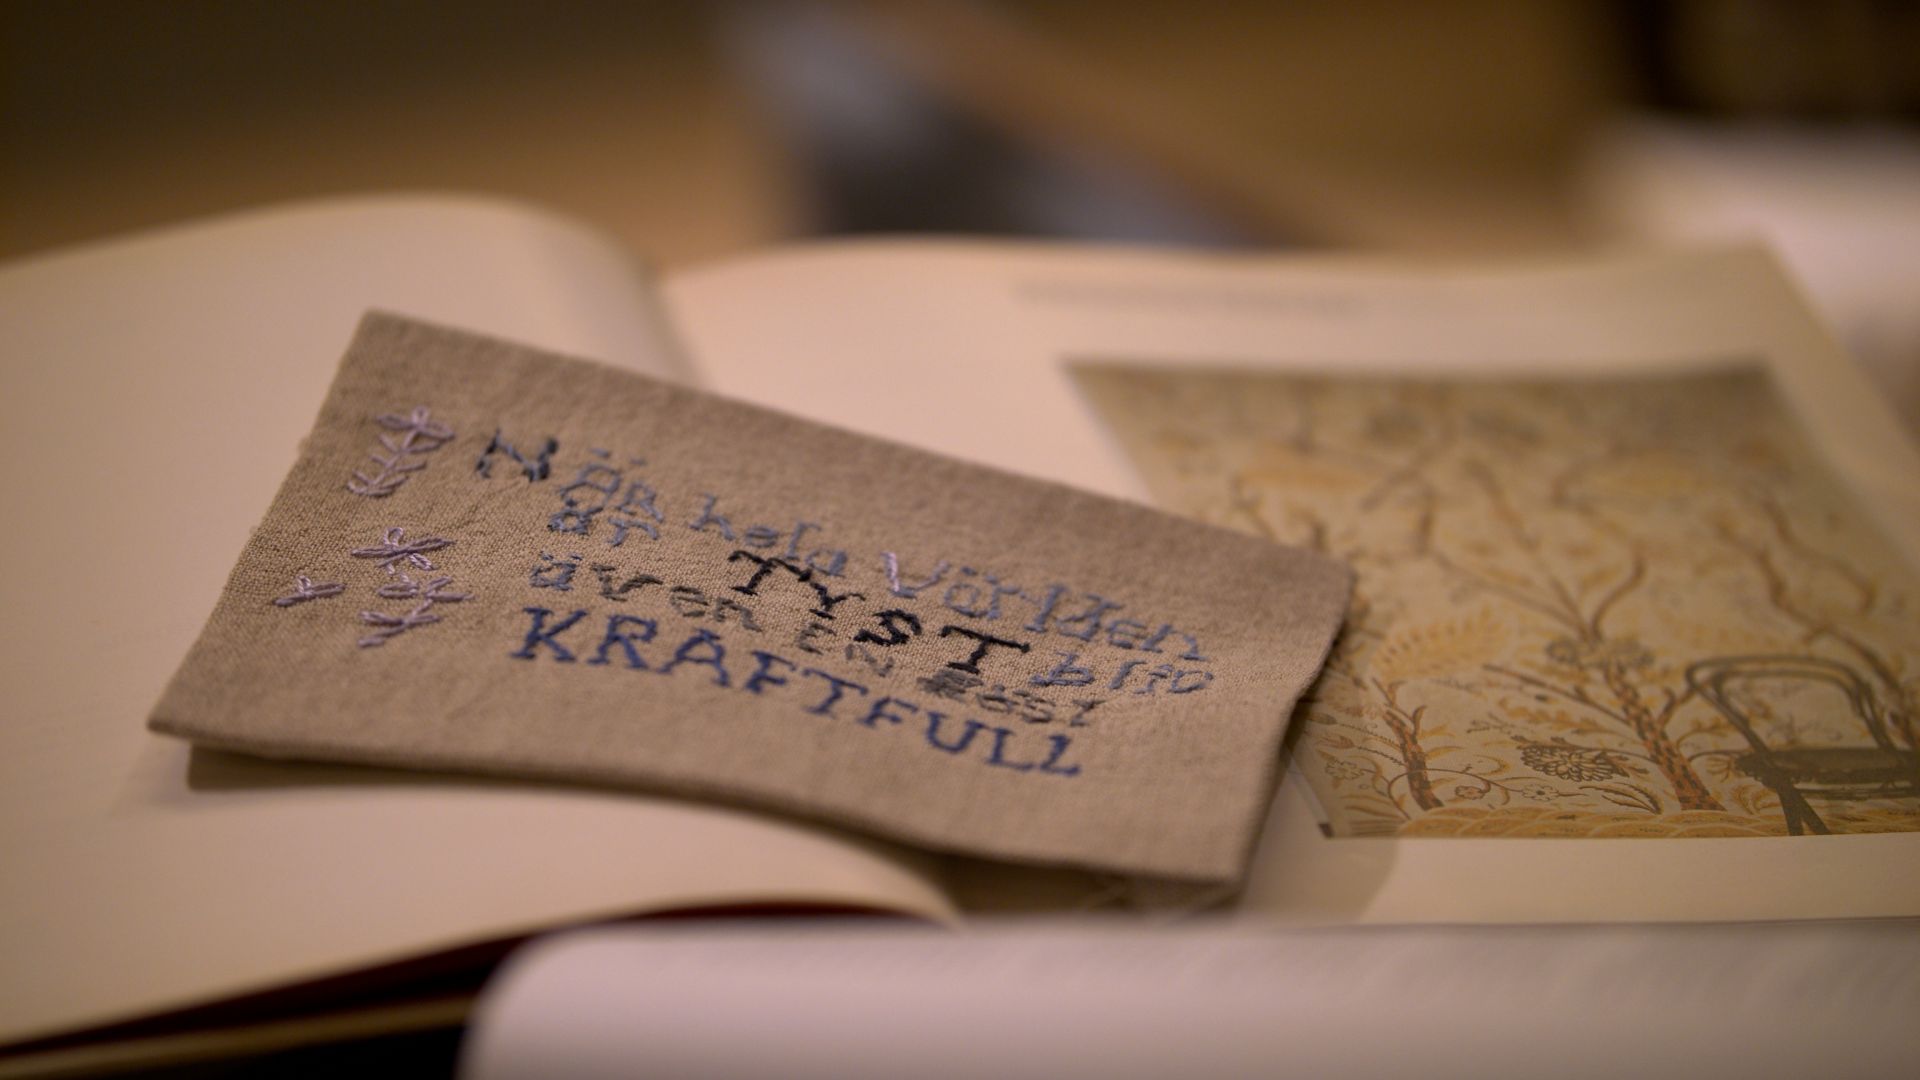 När hela världen
är TYST blir
även EN RÖST
KRAFTFULL